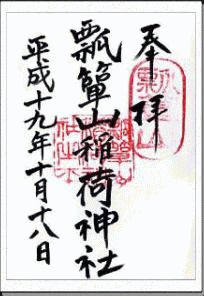 奉拝
瓢箪山稲荷神社
平成十九年十月十八日